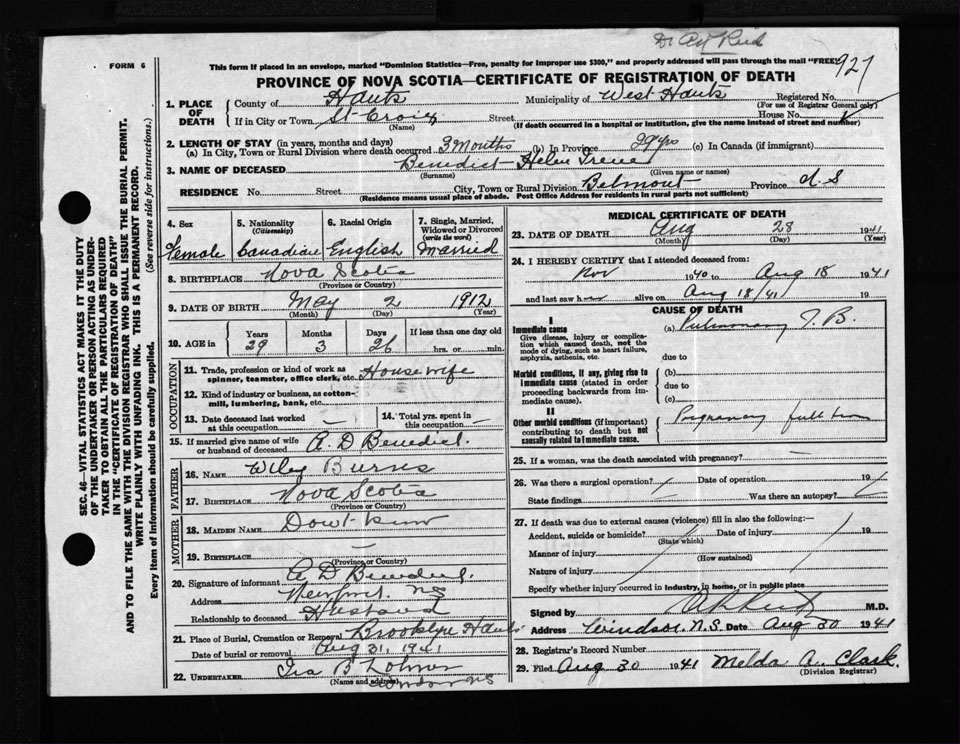 Dr Reid
927
FORM 6
This form if placed in an envelope, marked "Dominion Statistics—Free, penalty for improper use $300," and properly addressed will pass through the mail "FREE"
PROVINCE OF NOVA SCOTIA—CERTIFICATE OF REGISTRATION OF DEATH
1. PLACE OF DEATH
County of Hants Municipality of West Hants Registered No.
(For use of Registrar General only)
If in City or Town St Croix Street House No.
(Name) (If death occurred in a hospital or institution, give the name instead of street and number)
2. LENGTH OF STAY (in years, months and days)
(a) In City, Town or Rural Division where death occurred 3 Months (b) In Province 29 yrs (c) In Canada (if immigrant)
3. NAME OF DECEASED Benedict Helen Irena
(Surname) (Given name or names)
RESIDENCE No. Street City, Town or Rural Division Belmont Province N.S
(Residence means usual place of abode. Post Office Address for residents in rural parts not sufficient)
4. Sex
Female
5. Nationality (Citizenship)
Canadian
6. Racial Origin
English
7. Single, Married, Widowed or Divorced (write the word)
Married
8. BIRTHPLACE Nova Scotia
(Province or Country)
9. DATE OF BIRTH May 2 1912
(Month) (Day) (Year)
10. AGE in
Years 29
Months 3
Days 26
If less than one day old
hrs. or min.
OCCUPATION
11. Trade, profession or kind of work as spinner, teamster, office clerk, etc. Housewife
12. Kind of industry or business, as cotton-mill, lumbering, bank, etc.
13. Date deceased last worked at this occupation —
14. Total yrs. spent in this occupation —
15. If married give name of wife or husband of deceased A. D Benedict.
FATHER
16. NAME Wiley Burns
17. BIRTHPLACE Nova Scotia
(Province or Country)
MOTHER
18. MAIDEN NAME Dont know
19. BIRTHPLACE —
(Province or Country)
20. Signature of informant A D Benedict.
Address Newport. NS
Relationship to deceased Husband
21. Place of Burial, Cremation or Removal Brooklyn Hants
Date of burial or removal Aug 31, 1941
22. UNDERTAKER Ira B
(Name and address) Windsor NS
MEDICAL CERTIFICATE OF DEATH
23. DATE OF DEATH Aug 28 1941
(Month) (Day) (Year)
24. I HEREBY CERTIFY that I attended deceased from:
Nov 1940 to Aug 18 1941
and last saw her alive on Aug 18/41 19
CAUSE OF DEATH
I
Immediate cause
Give disease, injury or complication which caused death, not the mode of dying, such as heart failure, asphyxia, asthenia, etc.
(a) Pulmonary T.B.
due to
Morbid conditions, if any, giving rise to immediate cause (stated in order proceeding backwards from immediate cause).
(b)
due to
(c)
II
Other morbid conditions (if important) contributing to death but not causally related to immediate cause.
Pregnancy full term
25. If a woman, was the death associated with pregnancy? —
26. Was there a surgical operation? Date of operation 19
State findings Was there an autopsy?
27. If death was due to external causes (violence) fill in also the following:—
Accident, suicide or homicide? Date of injury 19
(State which)
Manner of injury
(How sustained)
Nature of injury
Specify whether injury occurred in industry, in home, or in public place
Signed by M.D.
Address Windsor. N.S. Date Aug 30 1941
28. Registrar's Record Number
29. Filed Aug 30 1941 Melda A. Clark.
(Division Registrar)
SEC. 46—VITAL STATISTICS ACT MAKES IT THE DUTY
OF THE UNDERTAKER OR PERSON ACTING AS UNDER-
TAKER TO OBTAIN ALL THE PARTICULARS REQUIRED
IN THE "CERTIFICATE OF REGISTRATION OF DEATH"
AND TO FILE THE SAME WITH THE DIVISION REGISTRAR WHO SHALL ISSUE THE BURIAL PERMIT.
WRITE PLAINLY WITH UNFADING INK. THIS IS A PERMANENT RECORD.
Every item of information should be carefully supplied. (See reverse side for instructions.)